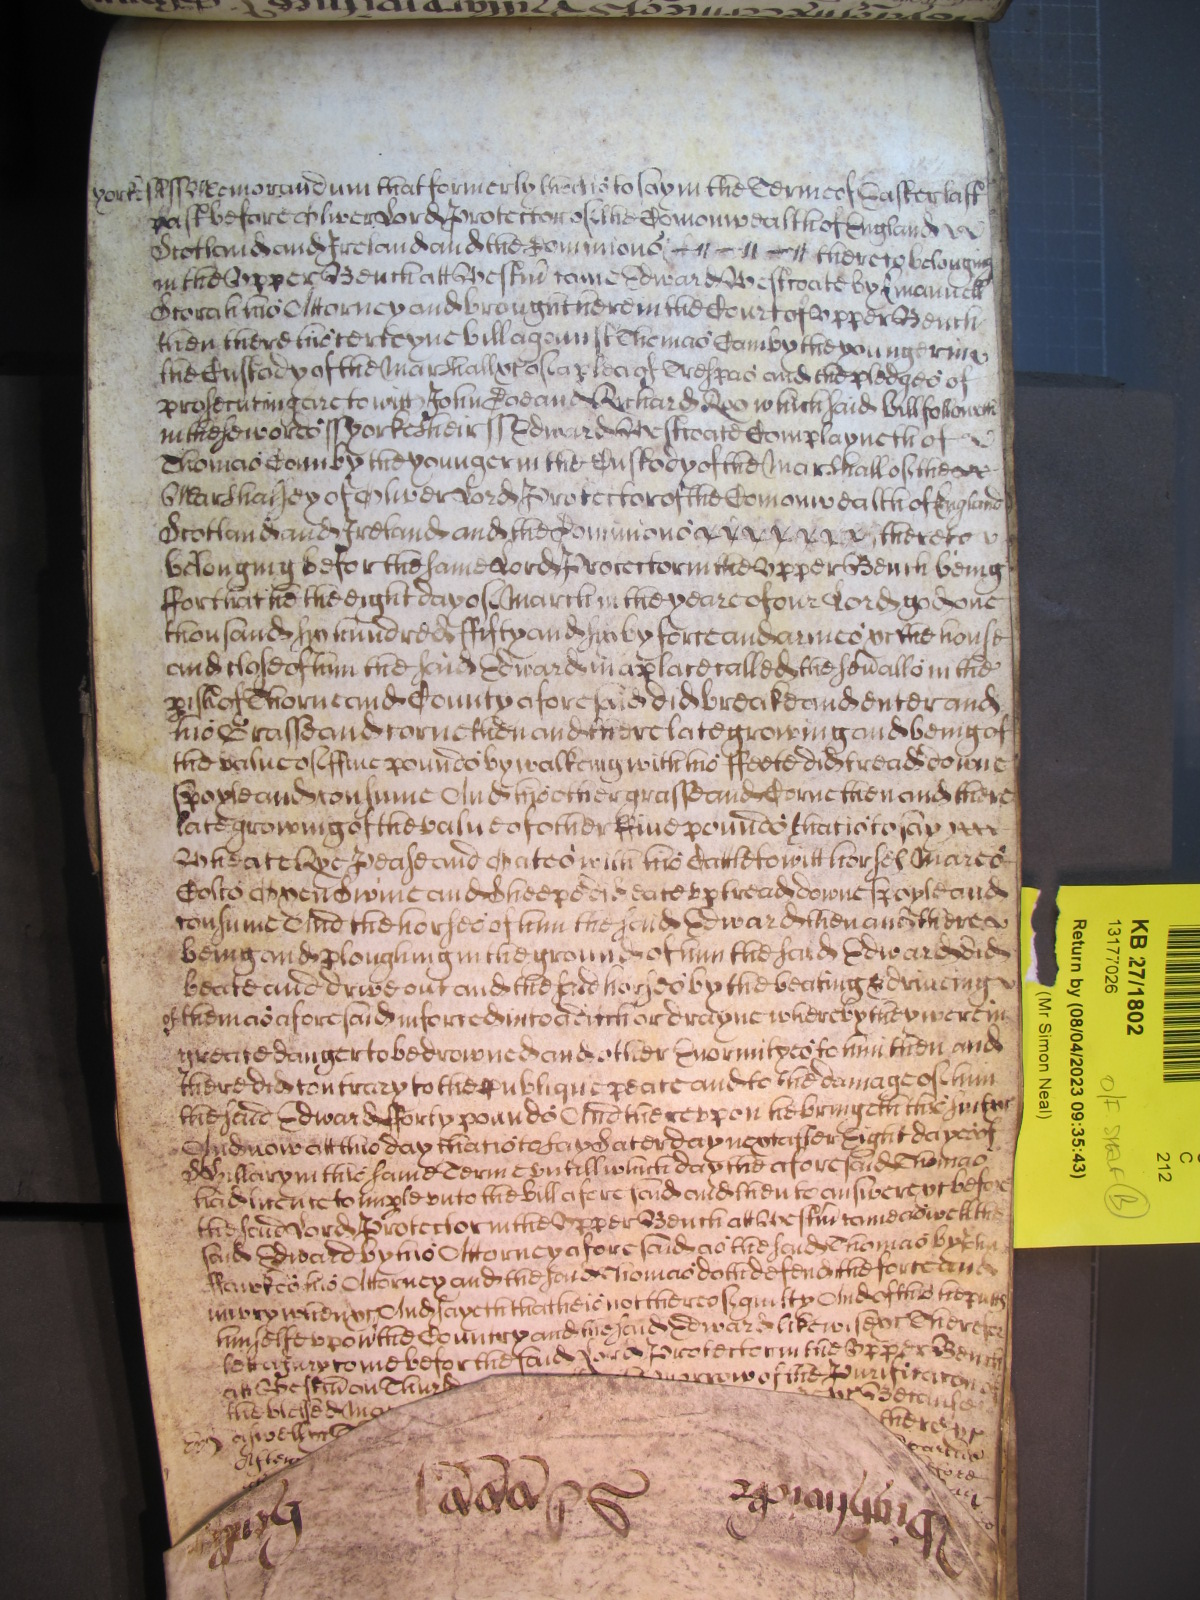 yorks ss Memorandum that formerly that is to say in the Terme of Easter last
past before Oliver Lord Protector of the Comonwealth of England
Scotland and Ireland and the Dominions thereto belonging
in the Upper Bench att Westm came Edward Westcoate by Emanuell
his Attorney and brought here in the Court of Upper Bench
then there his certeyne bill against Thomas Canby the younger in
the Custody of the Marshall &c of a plea of Trespas and the pledges of
prosecuting are to witt John Doe and Richard Roo which said bill followeth
in these words ss Yorkesheir ss Edward Westcoate Complayneth of
Thomas Canby the younger in the Custody of the Marshall of the
Marshalsey of Oliver Lord Protector of the Comonwealth of England
Scotland and Ireland and the Dominions thereto
belonging before the same Lord Protector in the Upper Bench being
For that he the eight day of March in the yeare of our Lord god one
thousand six hundred fifty and six by force and armes &c the house
and close of him the said Edward in a place called the in the
pish of Thorne and County aforesaid did breake and enter and
his Grasse and corne then and there late growing and being of
the value of five pounds by walkeing with his Feete did tread downe
spoyle and consume And his other grasse and Corne then and there
late growing of the value of other Five pounds that is to say
Wheate Rye Pease and Oates with his Cattle to witt horses Mares
Colts Oxen Swine and Sheepe did eate up tread downe spoyle and
consume And the horses of him the said Edward then and there
being and ploughing in the ground of him the said Edward did
beate and drive out and the said horses by the beating & driveing
of them as aforesaid inforced into a ditch or drayne whereby they were in
greate danger to be drowned and other Enormityes to him then and
there did contrary to the publique peace and to the damage of him
the said Edward Forty pounds And thereupon he bringeth this suite &c
And now att this day that is to say Saterday next after Eight dayes of
St Hillary in this same Terme untill which day the aforesaid Thomas
had licence to imple unto the bill aforesaid and then to answere &c before
the said Lord Protector in the Upper Bench att Westm came as well the
said Edward by his Attorney aforesaid as the said Thomas by
his Attorney and the said Thomas doth defend the force and
iniury when &c And sayeth that he is not thereof guilty And of this he putts
himselfe upon the Country and the said Edward likewise &c Therefore
lett a Jury come before the said Lord Protector in the Upper Bench
att Westm on morrow of the Purificacon of
the blessed &c Because
aswell there
KB 27/1802
13177026
Return by (08/04/2023 09:35:43)
(Mr Simon Neal)
C
212